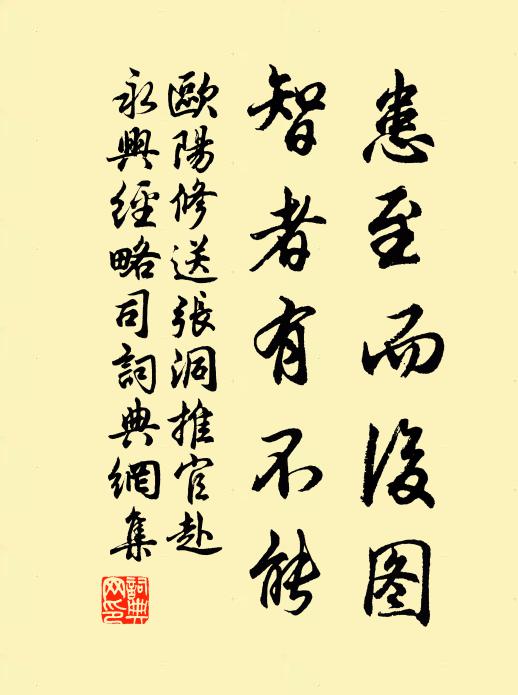 患至而後图
智者有不能
歐陽修送張洞推官赴
永興經略司詞典網集
詞典
网印